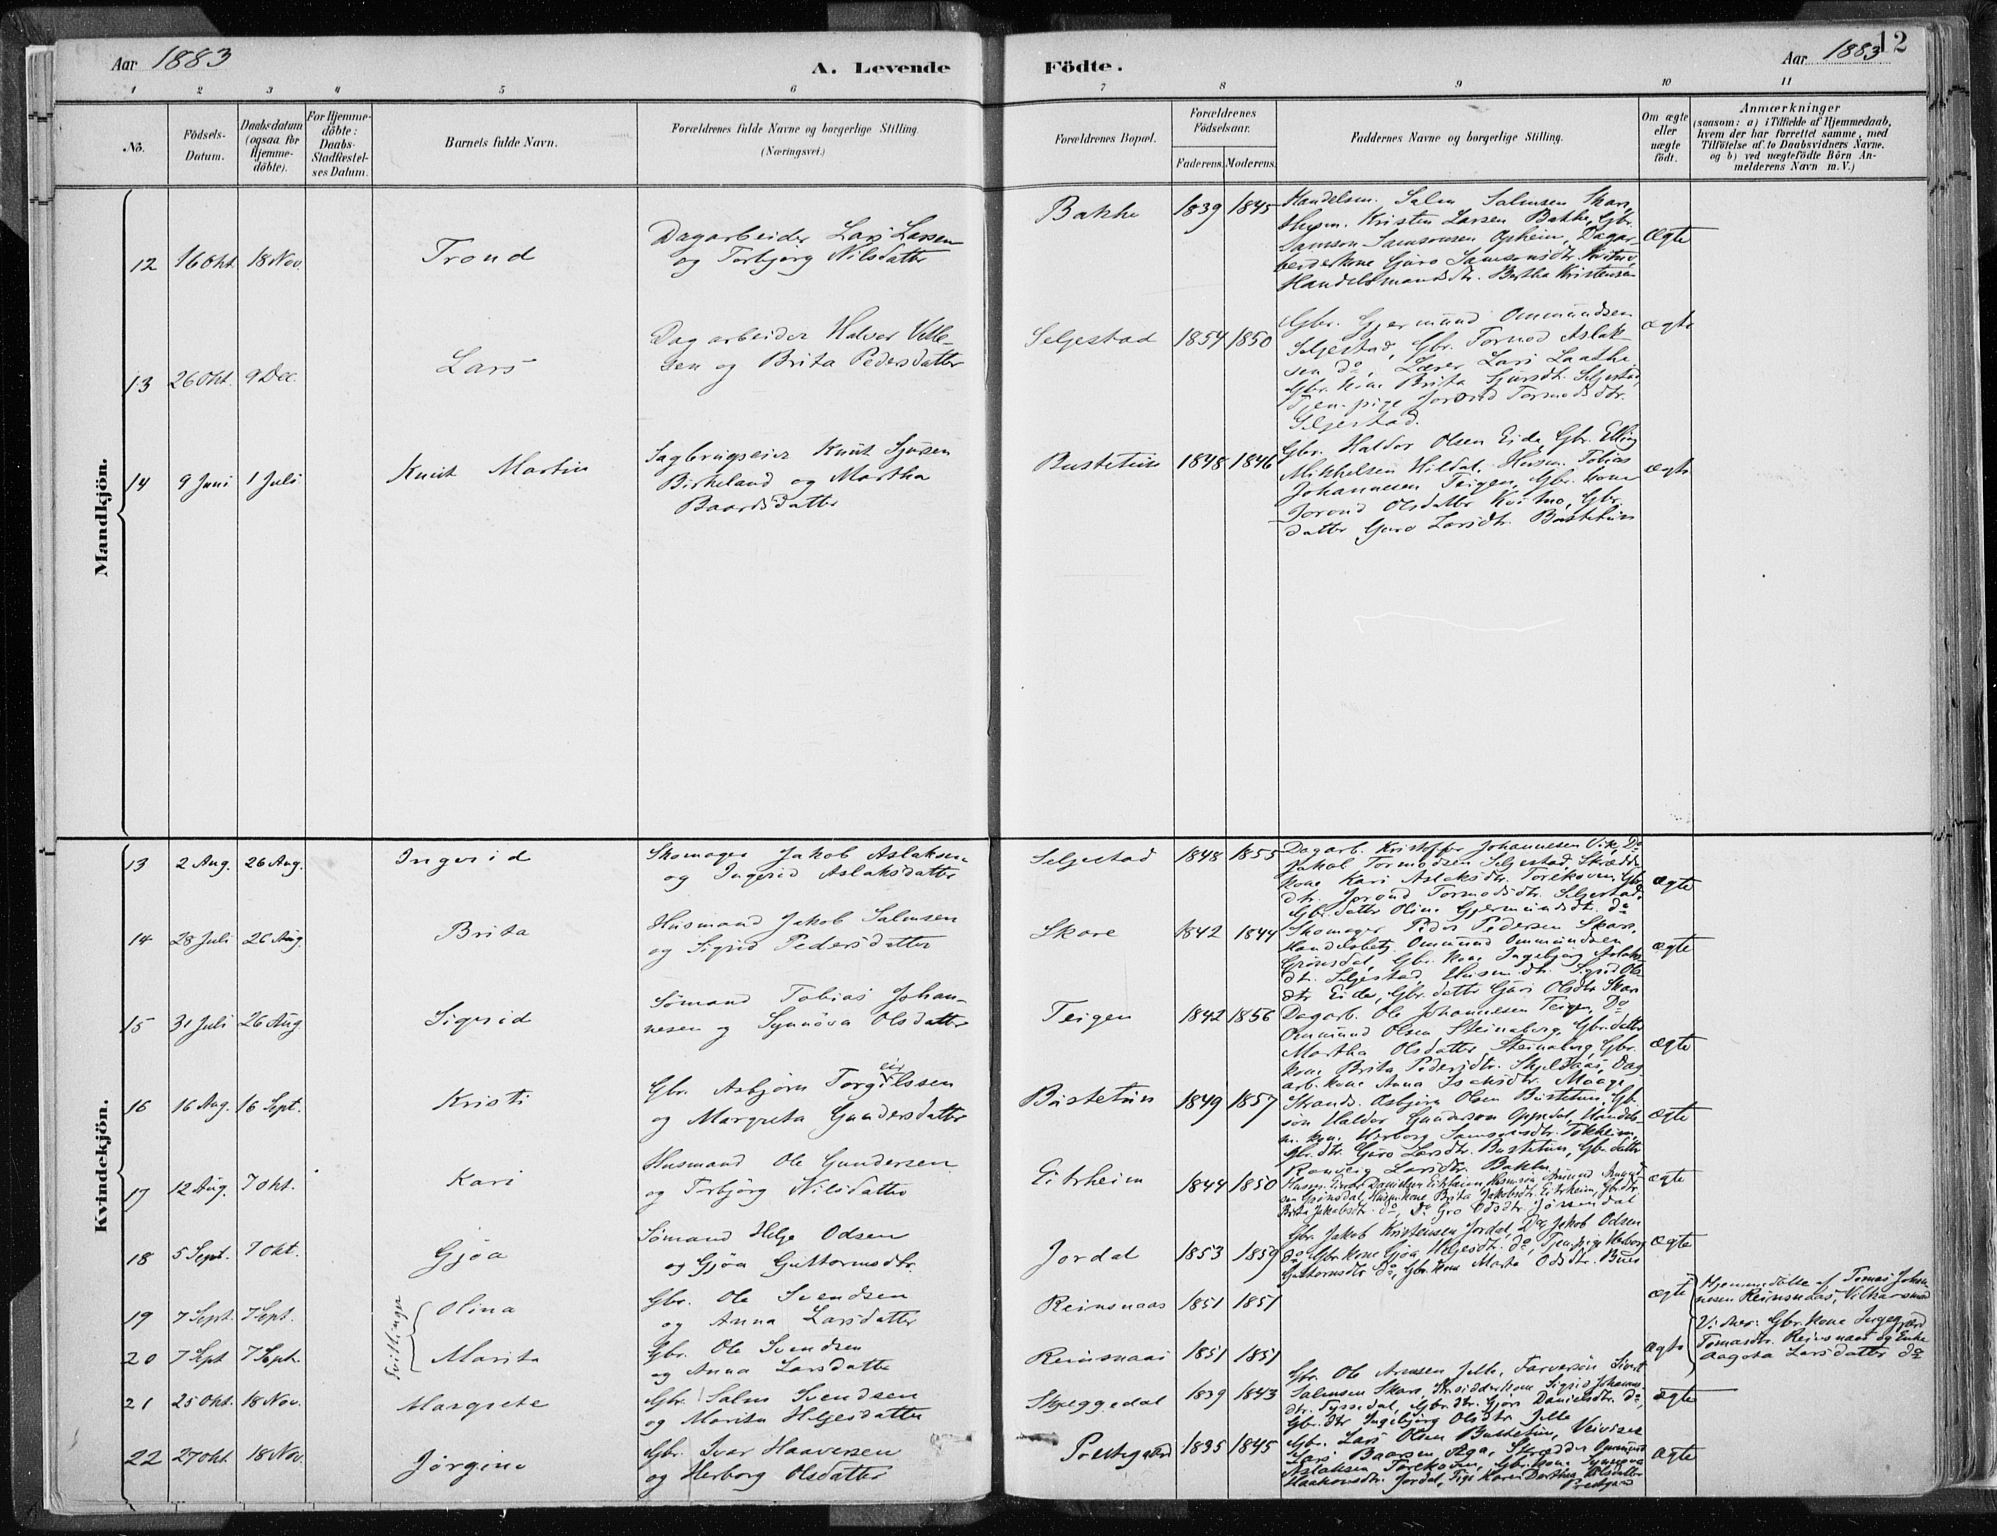 Aar 1883
A. Levende
Födte.
Aar 1883
12
1 2 3 4 5 6 7 8 9 10 11
No.
Födsels-
Datum.
Daabsdatum
(ogsaa for
Hjemme-
döbte).
For Hjemme-
döbte:
Daabs-
Stadfæstel-
ses Datum.
Barnets fulde Navn.
Forældrenes fulde Navne og borgerlige Stilling.
(Næringsvei.)
Forældrenes Bopæl.
Forældrenes
Födselsaar.
Faderens. Moderens.
Faddernes Navne og borgerlige Stilling.
Om ægte
eller
uægte
födt.
Anmærkninger
(saasom: a) i Tilfælde af Hjemmedaab,
hvem der har forrettet samme, med
Tilföielse af to Daabsvidners Navne.
og b) ved uægtefödte Börn An-
melderens Navn m. V.)
Mandkjön.
12 16 Okt. 18 Nov. Trond
Dagarbeider Lars Larsen
og Torbjørg Nilsdatter
Bakke 1839 1845
Handelsm. Salm Salmsen Skare,
Husm. Kristen Larsen Bakke, Gbr.
Samson Samsonsen Opheim, Dagar-
beiderkone Guro Samsonsdtr.
Handelsmandsdtr. Bertha Kristensen
Ægte
13 26 Okt. 9 Dec. Lars
Dagarbeider Halvor Vetle-
sen og Brita Pedersdatter
Seljestad 1854 1850
Gbr. Gjermund Ommundsen
Seljestad, Gbr. Tormod Aslak-
sen do, Lærer Lars Laathe
Gbr. kone Brita Sjursdt. Seljestad,
Tjen. pige Jorond Tormodsdtr.
Seljestad.
ægte
14 9 Juni 1 Juli Knut Martin
Sagbrugseier Knut Sjursen
Birkeland og Martha
Baardsdatter
Bustetun 1848 1846
Gbr. Haldor Olsen Eide, Gbr. Elling
Mikkelsen Hildal, Husm. Tobias
Johannesen Teigen, Gbr. kone
Jorond Olsdatter Kvitno, Gbr.
datter Guro Larsdtr. Bustetun
ægte
Kvindekjön.
13 2 Aug. 26 Aug. Ingerid
Skomager Jakob Aslaksen
og Ingerid Aslaksdatter
Seljestad 1848 1855
Dagarb. Kristoffer Johannesen Vik, Do
Jakob Tormodsen Seljestad, Skrædder-
kone Kari Aslaksdtr. Torekoven, Gbr.
dtr. Jorond Tormodsdtr. Seljestad,
Gbr. datter Oline Gjermundsdtr. do
ægte
14 28 Juli 26 Aug. Brita
Husmand Jakob Salmsen
og Sigrid Pedersdatter
Skare 1842 1844
Skomager Peder Pedersen Skare,
Handelsbetj. Ommund Ommundsen
Grønsdal, Gbr. kone Ingebjørg Aslaks-
dtr. Seljestad, Husm. dtr. Sigrid Ols-
dtr. Eide, Gbr. datter Guri Olsdtr Skare
ægte
15 31 Juli 26 Aug Sigrid
Sømand Tobias Johan-
nesen og Synnøva Olsdatter
Teigen 1842 1856
Dagarb. Ole Johannesen Teigen, Do
Ommund Olsen Steinaberg, Gbr. datter
Martha Olsdatter Steinaberg, Gbr.
kone Brita Pedersdtr. Skjeldaas, Dag
arb. kone Anna Isaksdtr. Maage
ægte
16 16 Aug. 16 Sept. Kristi
Gbr. Asbjørn Torgeilssen
og Margreta Gundersdatter
Bustetun 1849 1857
Strands. Asbjørn Olsen Bustetun, Gbr.
søn Haldor Gunderson Oppedal, Handels-
m. kone Herborg Samsonsdtr. Tokheim,
Gbr. dtr. Guro Larsdtr. Bustetun, Gbr. datter
Ronveig Larsdtr. Bakke
ægte
17 12 Aug. 7 Okt. Kari
Husmand Ole Gundersen
og Torbjørg Nilsdatter
Eitrheim 1844 1850
Husm. Einar Danielsen Eitrheim, Husm. søn Amund Amund-
sen Grønsdal, Husm. kone Brita Jakobsdtr. Eitrheim, Gbr. dtr
Brita Jakobsdtr. do, Do Gro Odsdtr. Jøsendal
ægte
18 5 Sept. 7 Okt. Gjøa
Sømand Helje Odsen
og Gjøa Guttormsdtr.
Jordal 1853 1859
Gbr. Jakob Kristensen Jordal, Do Jakob Odsen
do, Gbr. kone Gjøa Heljesdtr. do, Tjen. pige Herborg
Guttormsdtr do, Gbr. kone Marta Odsdtr. Buer
ægte
Tvillinger
19 7 Sept. 7 Sept. Olina
Gbr. Ole Svendsen
og Anna Larsdatter
Reinsnaas 1851 1851
ægte
Hjemmedöbte af Tomas Johan-
nesen Reinsnaas, Vilkaarsmand
Vidner: Gbr. kone Ingegjærd
Tomasdtr. Reinsnaas og Enke
Aagota Larsdatter do
20 7 Sept 7 Sept. Marita
Gbr. Ole Svendsen
og Anna Larsdatter
Reinsnaas 1851 1851
ægte
21 25 Okt. 18 Nov. Margrete
Gbr. Salm Svendsen
og Marita Heljesdatter
Skjeggedal 1839 1843
Gbr. Ole Arnesen Jelle, Farversøn Sivert
Salmsen Skare, kone Sigrid Johannes-
dtr. Tyssedal, Gbr. dtr. Gjøri Danielsdtr. do,
Gbr. dtr Ingebjørg Olsdtr. Jelle
ægte
22 27 Okt 18 Nov. Jørgine
Gbr. Ivar Haaversen
og Herborg Olsdatter
Prestegaard 1835 1845
Gbr. Lars Olsen Bustetun, Veiviser
Lars Baarsen Aga, Skrædder Ommund
Aslaksen Torekoven, Gbr. kone Synnøva
Haakonsdtr. Jordal, Pige Karen Dorthea Olsdatter
Prestgaard
ægte